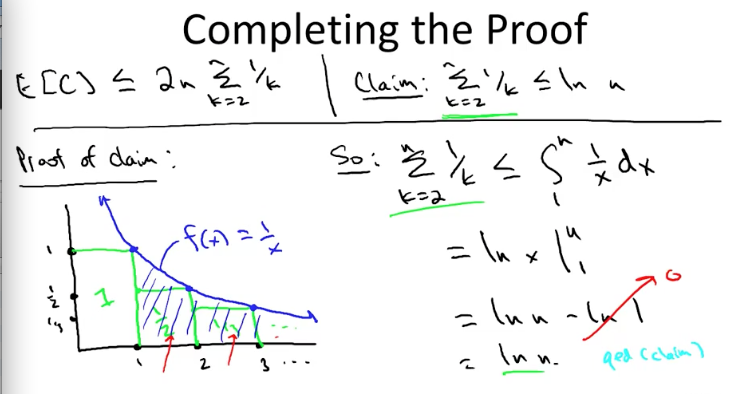 Completing the Proof
E[C] ≤ 2n Σ_{k=2}^{n} 1/k
Claim: Σ_{k=2}^{n} 1/k ≤ ln n
Proof of claim:
f(x) = 1/x
1
1/2
1/3
1
1/2
1/3
...
1 2 3 ...
So: Σ_{k=2}^{n} 1/k ≤ ∫_1^n 1/x dx
= ln x |_1^n
= ln n - ln 1
0
= ln n.
qed (claim)